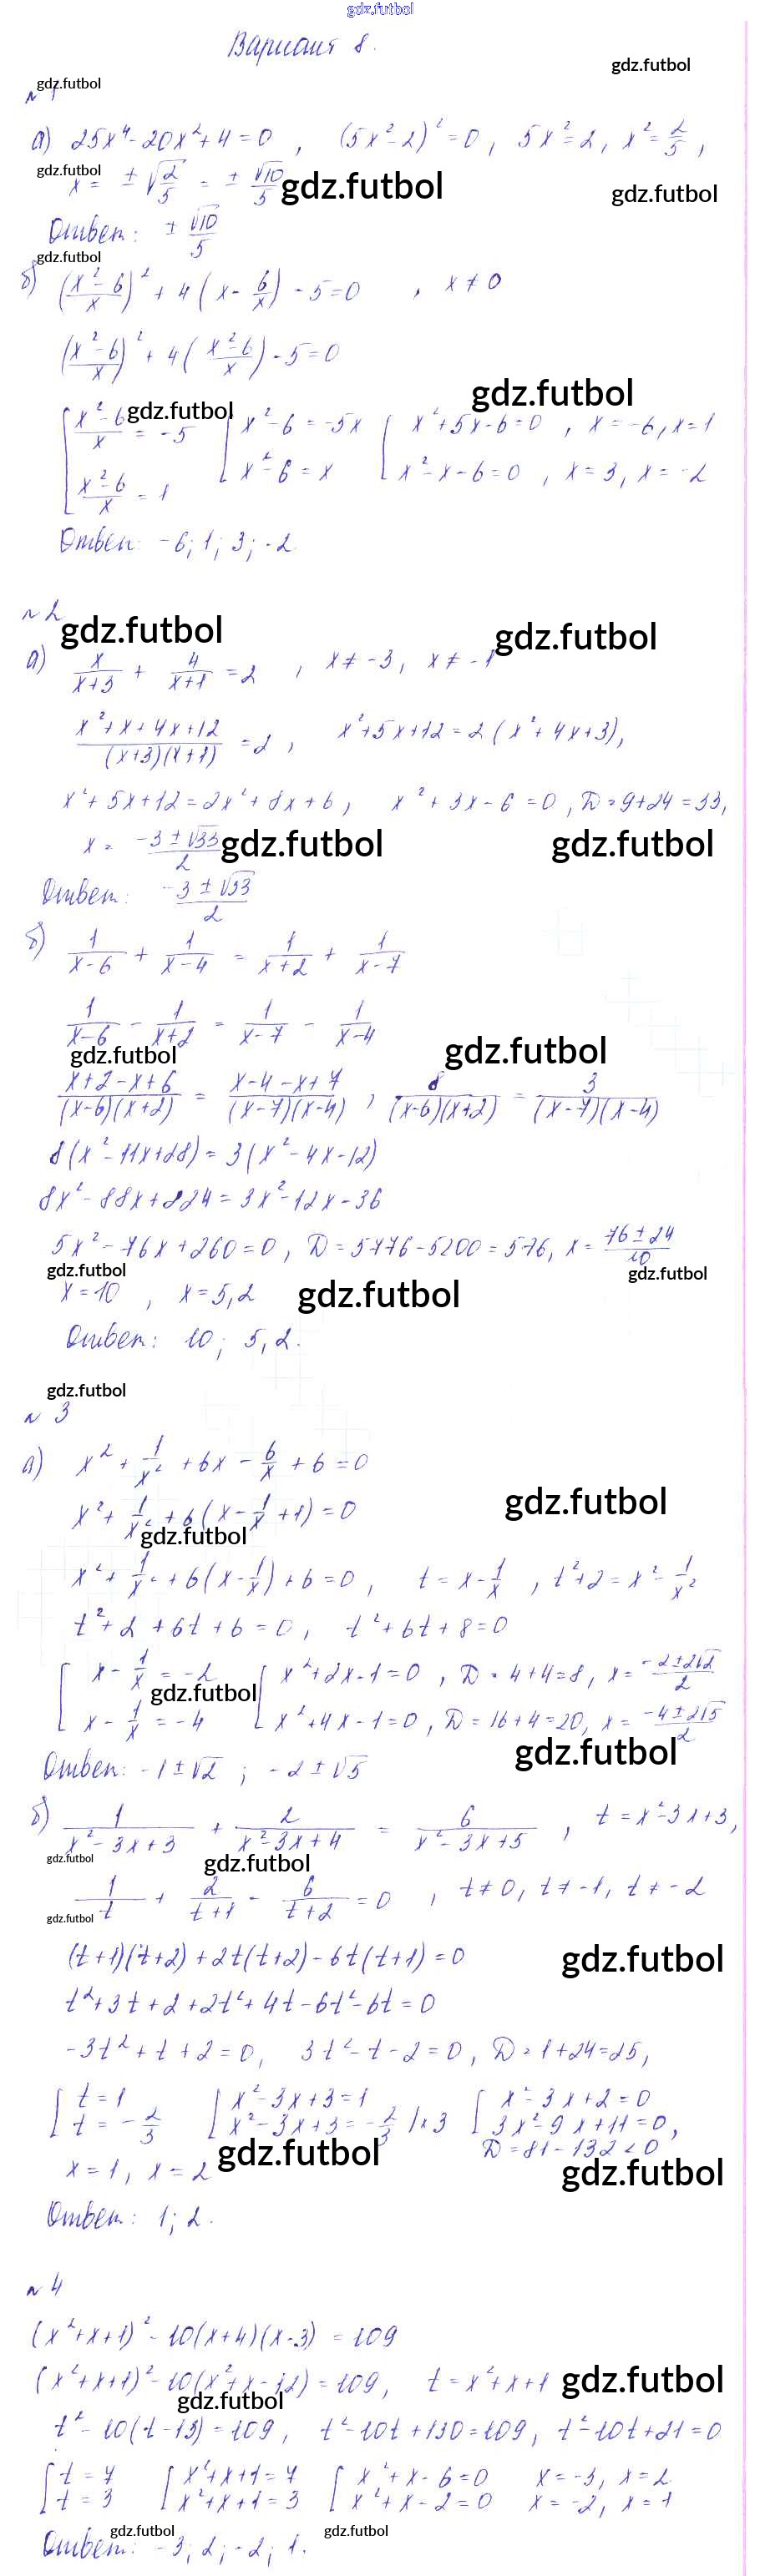 gdz.futbol
Вариант 8.
gdz.futbol
gdz.futbol
№ 1
а) 25x⁴-20x²+4=0 , (5x²-2)²=0, 5x²=2, x²=2/5,
gdz.futbol
x = ±√(2/5) = ± √10/5
gdz.futbol
gdz.futbol
Ответ: ± √10/5
gdz.futbol
б) ((x²-6)/x)² + 4(x - 6/x) - 5=0 , x≠0
((x²-6)/x)² + 4((x²-6)/x) - 5=0
gdz.futbol
gdz.futbol
[ (x²-6)/x = -5 [ x²-6 = -5x [ x²+5x-6=0 , x=-6, x=1
(x²-6)/x = 1 x²-6 = x x²-x-6=0 , x=3, x=-2
Ответ: -6; 1; 3; -2
№ 2
gdz.futbol
gdz.futbol
а) x/(x+3) + 4/(x+1) = 2 , x≠-3, x≠-1
(x²+x+4x+12)/((x+3)(x+1)) = 2 , x²+5x+12=2(x²+4x+3),
x²+5x+12=2x²+8x+6, x²+3x-6=0, D=9+24=33,
x = (-3±√33)/2
gdz.futbol
gdz.futbol
Ответ: (-3±√33)/2
б) 1/(x-6) + 1/(x-4) = 1/(x+2) + 1/(x-7)
1/(x-6) - 1/(x+2) = 1/(x-7) - 1/(x-4)
gdz.futbol
gdz.futbol
(x+2-x+6)/((x-6)(x+2)) = (x-4-x+7)/((x-7)(x-4)) , 8/((x-6)(x+2)) = 3/((x-7)(x-4))
8(x²-11x+28)=3(x²-4x-12)
8x²-88x+224=3x²-12x-36
5x²-76x+260=0, D=5776-5200=576, x=(76±24)/10
gdz.futbol
gdz.futbol
x=10 , x=5,2
gdz.futbol
Ответ: 10; 5,2.
gdz.futbol
№ 3
а) x² + 1/x² + 6x - 6/x + 6=0
gdz.futbol
x² + 1/x² + 6(x - 1/x + 1)=0
gdz.futbol
x² + 1/x² + 6(x - 1/x) + 6=0, t=x-1/x , t²+2=x²-1/x²
t²+2+6t+6=0, t²+6t+8=0
[ x - 1/x = -2 [ x²+2x-1=0 , D=4+4=8, x=(-2±2√2)/2
gdz.futbol
x - 1/x = -4 x²+4x-1=0, D=16+4=20, x=(-4±2√5)/2
gdz.futbol
Ответ: -1±√2 ; -2±√5
б) 1/(x²-3x+3) + 2/(x²-3x+4) = 6/(x²-3x+5) , t=x²-3x+3,
gdz.futbol
gdz.futbol
1/t + 2/(t+1) - 6/(t+2) = 0 , t≠0, t≠-1, t≠-2
gdz.futbol
(t+1)(t+2)+2t(t+2)-6t(t+1)=0
gdz.futbol
t²+3t+2+2t²+4t-6t²-6t=0
-3t²+t+2=0, 3t²-t-2=0, D=1+24=25,
[ t=1 [ x²-3x+3=1 [ x²-3x+2=0
t=-2/3 x²-3x+3=-2/3 |×3 3x²-9x+11=0,
D=81-132<0
gdz.futbol
x=1, x=2
gdz.futbol
Ответ: 1; 2.
№ 4
(x²+x+1)²-10(x+4)(x-3)=109
(x²+x+1)²-10(x²+x-12)=109, t=x²+x+1
gdz.futbol
gdz.futbol
t²-10(t-13)=109, t²-10t+130=109, t²-10t+21=0
[ t=7 [ x²+x+1=7 [ x²+x-6=0 x=-3, x=2
t=3 x²+x+1=3 x²+x-2=0 x=-2, x=1
gdz.futbol
gdz.futbol
Ответ: -3; 2; -2; 1.